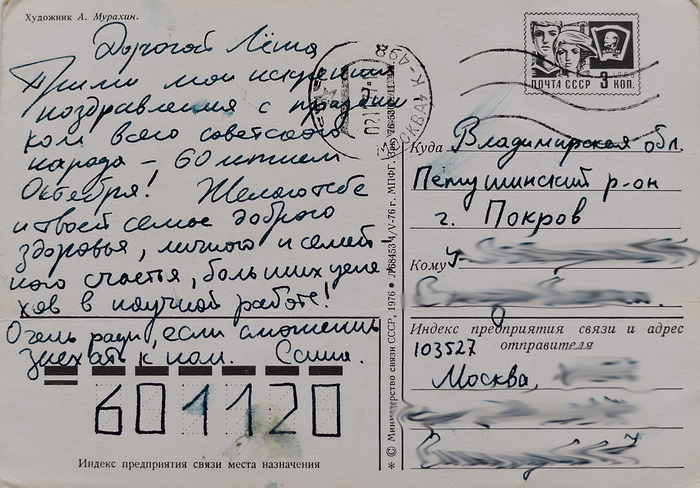 Художник А. Мурахин.
Дорогой Лёша
Прими мои искренние
поздравления с праздни
ком всего советского
народа – 60 летием
Октября! Желаю тебе
и твоей семье доброго
здоровья, личного и семей
ного счастья, больших успе
хов в научной работе!
Очень рады, если сможешь
заехать к нам. Саша.
601120
Индекс предприятия связи места назначения
* © Министерство связи СССР, 1976 •
МОСКВА К-498
ПОЧТА СССР 3 КОП.
Куда Владимирская обл.
Петушинский р-он
г. Покров
Кому
Индекс предприятия связи и адрес
отправителя
103527
Москва,